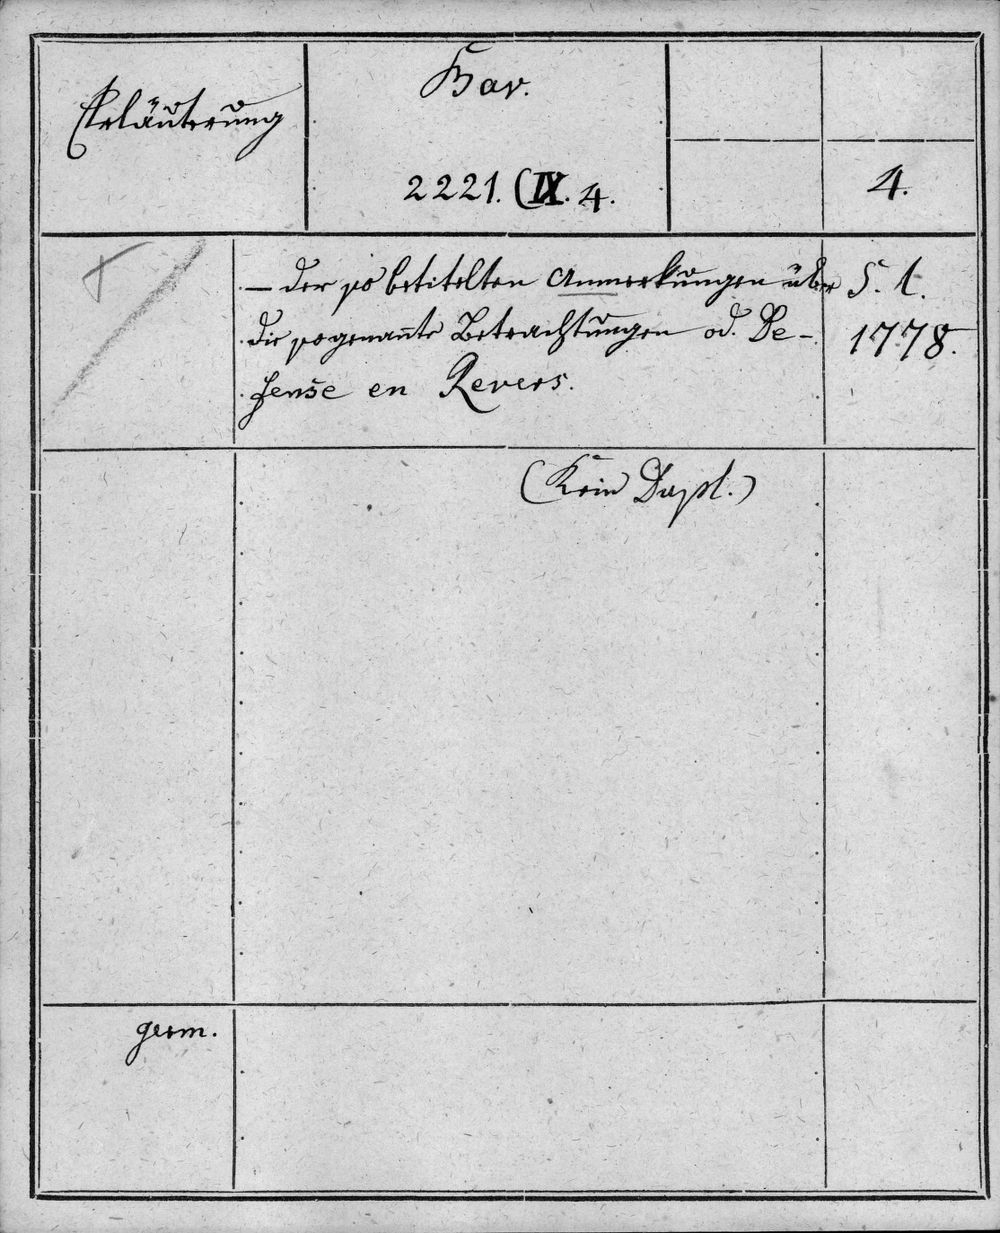 Erläuterung
Bav.
2221. (IX. 4.
4.
– der so betitelten Anmerkungen über
die sogenannte Betrachtungen od. De-
fense en Revers.
S. l.
1778.
(Kein Dupl.)
germ.